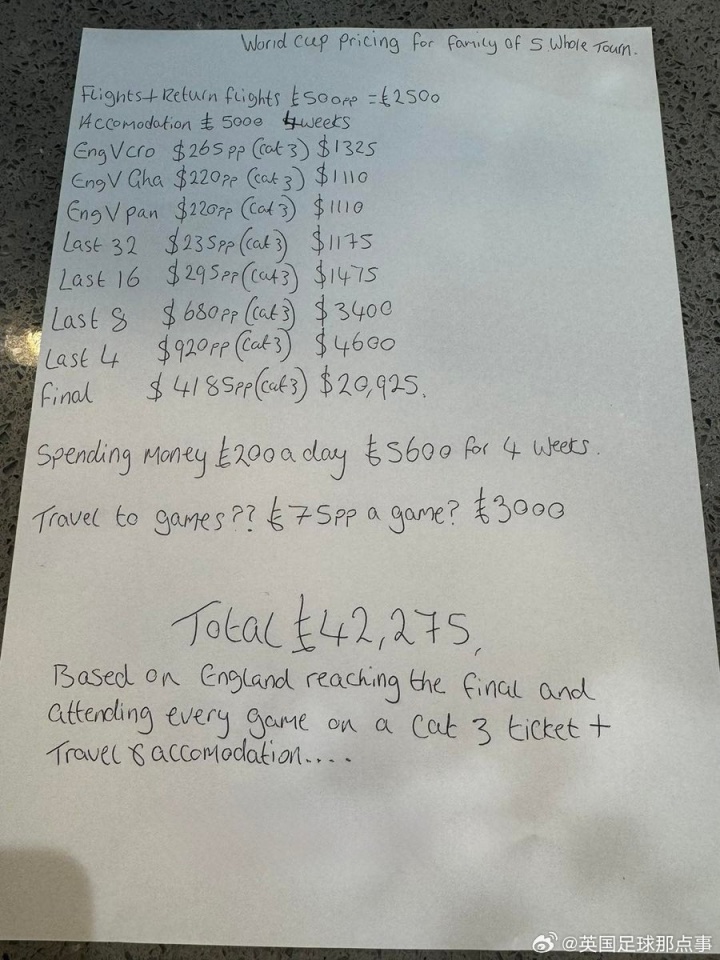 World Cup pricing for family of 5 Whole Tourn.
Flights + Return flights £500pp = £2500
Accomodation £ 5000 4 weeks
Eng V cro $265pp (cat 3) $1325
Eng V Gha $220pp (cat 3) $1110
Eng V pan $220pp (cat 3) $1110
Last 32 $235pp (cat 3) $1175
Last 16 $295pp (cat 3) $1475
Last 8 $680pp (cat 3) $3400
Last 4 $920pp (cat 3) $4600
final $4185pp (cat 3) $20,925.
Spending Money £200 a day £5600 for 4 weeks.
Travel to games?? £75pp a game? £3000
Total £42,275.
Based on England reaching the final and
attending every game on a Cat 3 ticket +
Travel & accomodation....
@英国足球那点事